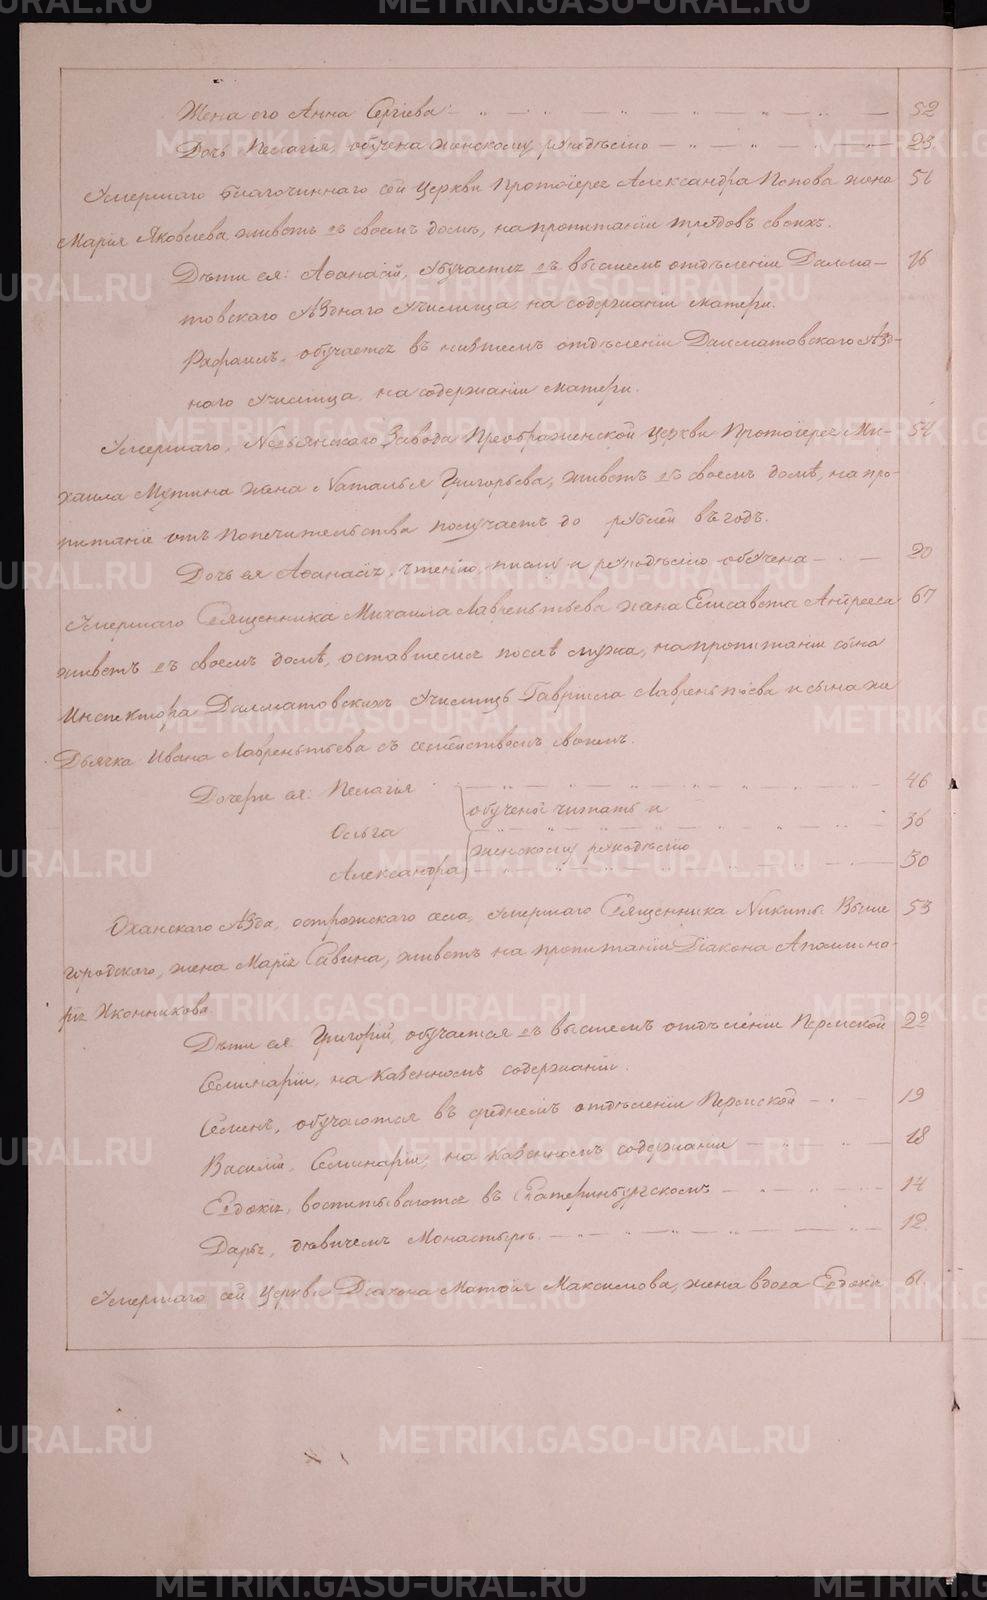 Жена его Анна Сергіева 52
Дочь Пелагія, обучена женскому рукодѣлію 23
Умершаго благочиннаго сей Церкви Протоіерея Александра Попова жена 51
Марія Яковлева живетъ въ своемъ домѣ, на пропитаніи трудовъ своихъ.
Дѣти ея: Афанасій, обучается въ высшемъ отдѣленіи Далма- 16
товскаго уѣзднаго училища, на содержаніи матери.
Рафаилъ, обучается въ низшемъ отдѣленіи Далматовскаго уѣзд-
наго училища, на содержаніи матери.
Умершаго, Невьянскаго Завода Преображенской Церкви Протоіерея Ми- 54
хаила Мутина жена Наталья Григорьева, живетъ въ своемъ домѣ, на про-
питаніе отъ попечительства получаетъ до рублей въ годъ.
Дочь ея Афанасія, чтенію, письму и рукодѣлію обучена 20
Умершаго Священника Михаила Лаврентьева жена Елисавета Андреева 67
живетъ въ своемъ домѣ, оставшемся послѣ мужа, на пропитаніи сына
Инспектора Далматовскихъ Училищъ Гавріила Лаврентьева и сына же
Дьячка Ивана Лаврентьева съ семействомъ своимъ.
Дочери ея: Пелагія 46
обучены читать и
Ольга 36
женскому рукодѣлію
Александра 30
Оханскаго уѣзда, острожскаго села, умершаго Священника Никиты Выше 53
городскаго, жена Марія Савина, живетъ на пропитаніи Діакона Аполлина-
рія Иконникова.
Дѣти ея Григорій, обучается въ высшемъ отдѣленіи Пермской 22
Семинаріи, на казенномъ содержаніи.
Семенъ, обучаются въ среднемъ отдѣленіи Пермской 19
Василій, Семинаріи, на казенномъ содержаніи 18
Евдокія, воспитываются въ Екатеринбургскомъ 14
Дарья, дѣвичемъ Монастырѣ. 12
Умершаго сей Церкви Діакона Матфія Максимова, жена вдова Евдокія 61